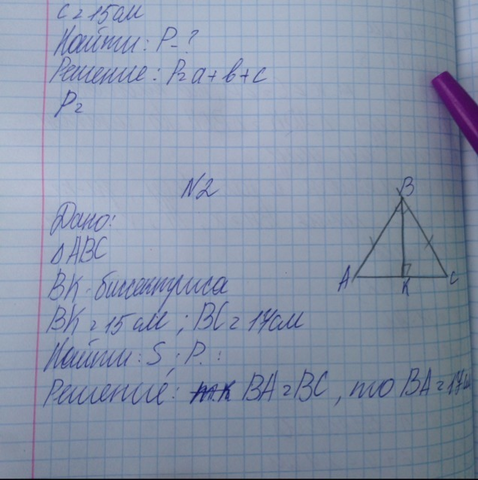 c = 15см
Найти: P - ?
Решение: P = a + b + c
P =
N2
Дано:
△ABC
BK - биссектриса
BK = 15 см ; BC = 17см
Найти: S ; P.
Решение: т.к BA = BC, то BA = 17см
B
A
K
C